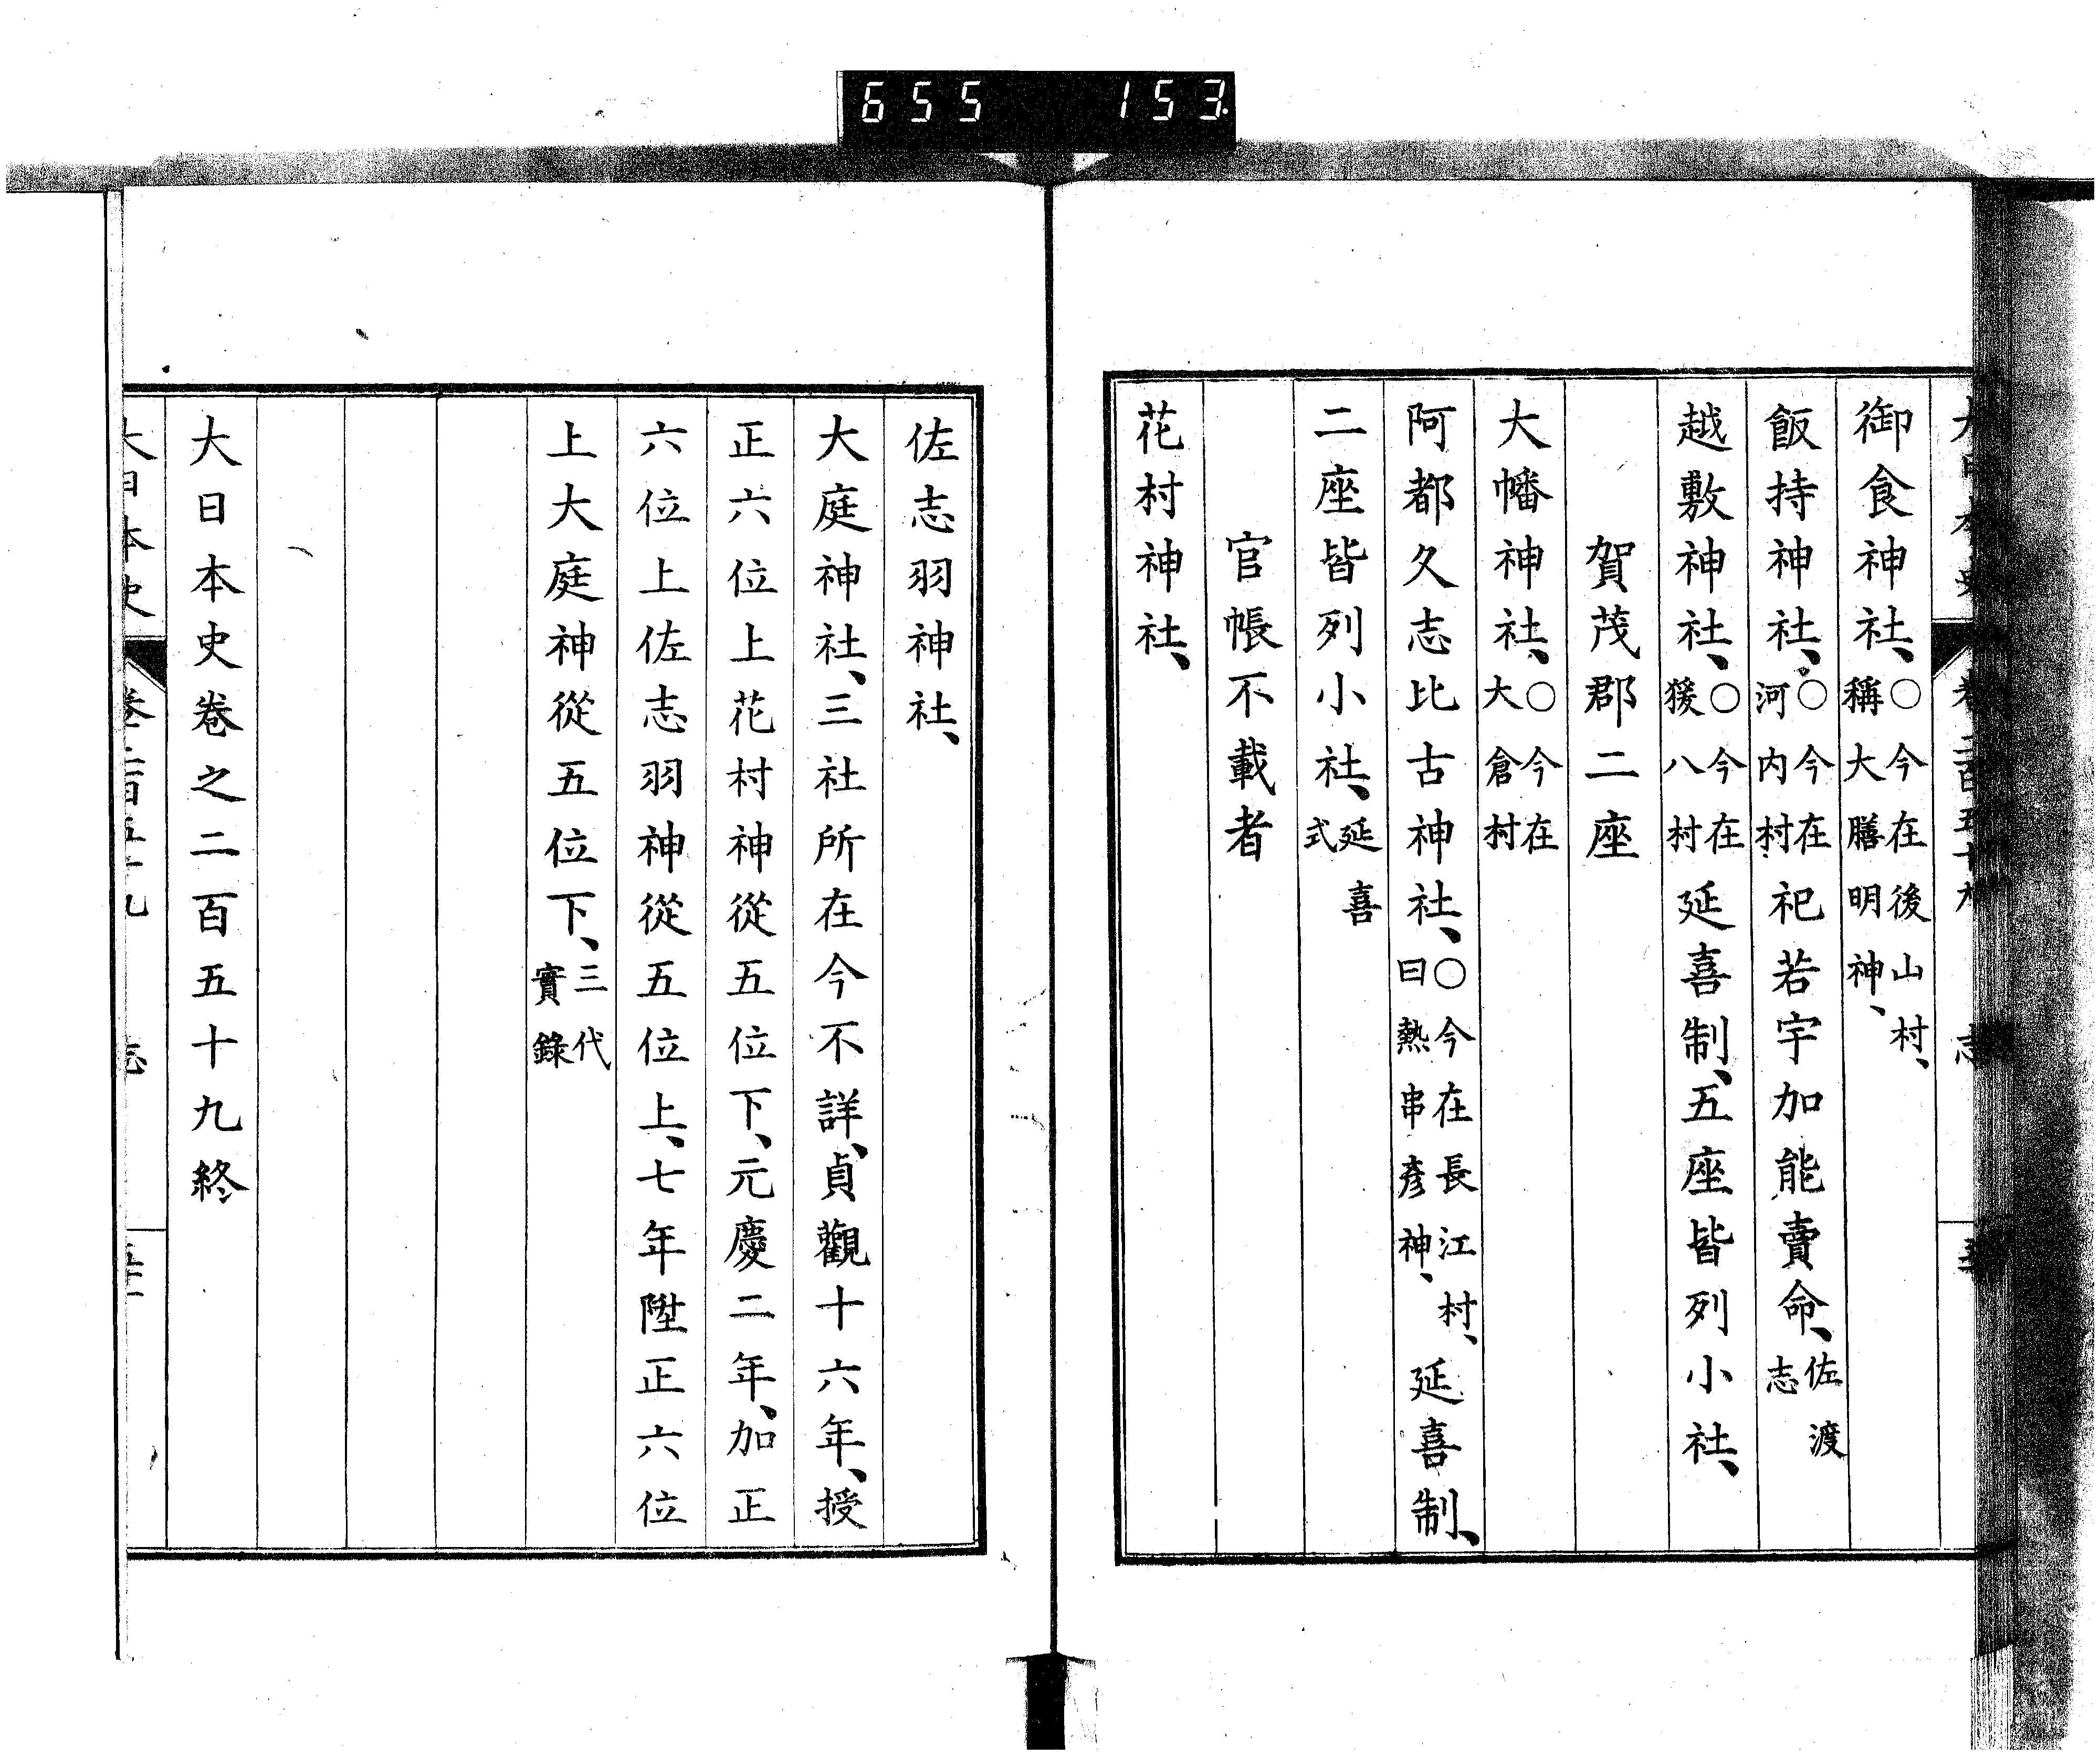 655 153
御食神社、○今在後山村、稱大膳明神、
飯持神社、○今在河内村祀若宇加能賣命、佐渡志
越敷神社、○今在猨八村延喜制、五座皆列小社、
賀茂郡二座
大幡神社、○今在大倉村
阿都久志比古神社、○今在長江村、曰熱串彥神、延喜制、
二座皆列小社、延喜式
官帳不載者
花村神社、
佐志羽神社、
大庭神社、三社所在今不詳、貞觀十六年、授
正六位上花村神從五位下、元慶二年、加正
六位上佐志羽神從五位上、七年陞正六位
上大庭神從五位下、三代實錄
大日本史卷之二百五十九終
大日本史 卷二百五十九 志